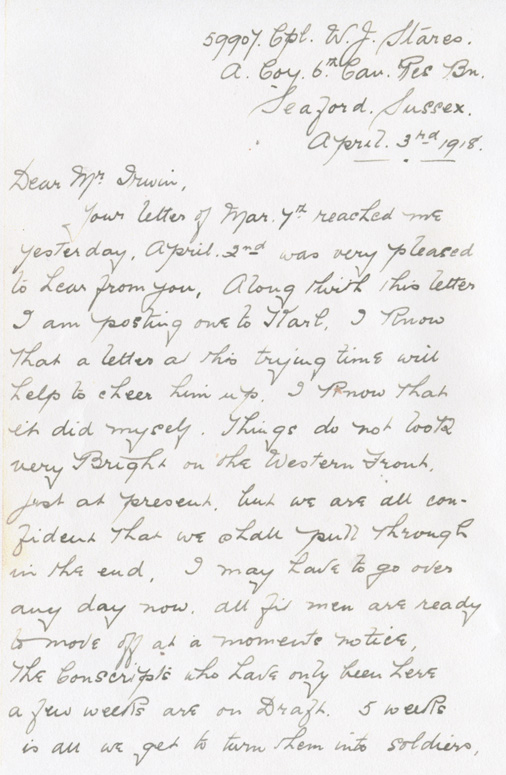 59907. Cpl. W. J. Stares.
A. Coy. 6th Can. Res Bn.
Seaford. Sussex.
April. 3rd 1918.
Dear Mr. Irwin,
Your letter of Mar. 7th reached me
yesterday, April. 2nd was very pleased
to hear from you, Along thwith this letter
I am posting one to Karl, I Know
that a letter a this trying time will
help to cheer him up. I Know that
it did myself. Things do not look
very Bright on the Western Front,
jest at present, but we are all con-
fident that we shall pull through
in the end, I may have to go over
any day now. all fit men are ready
to move off at a moments notice,
The Conscripts who have only been here
a few weeks are on Draft. 5 weeks
is all we get to turn them into soldiers,